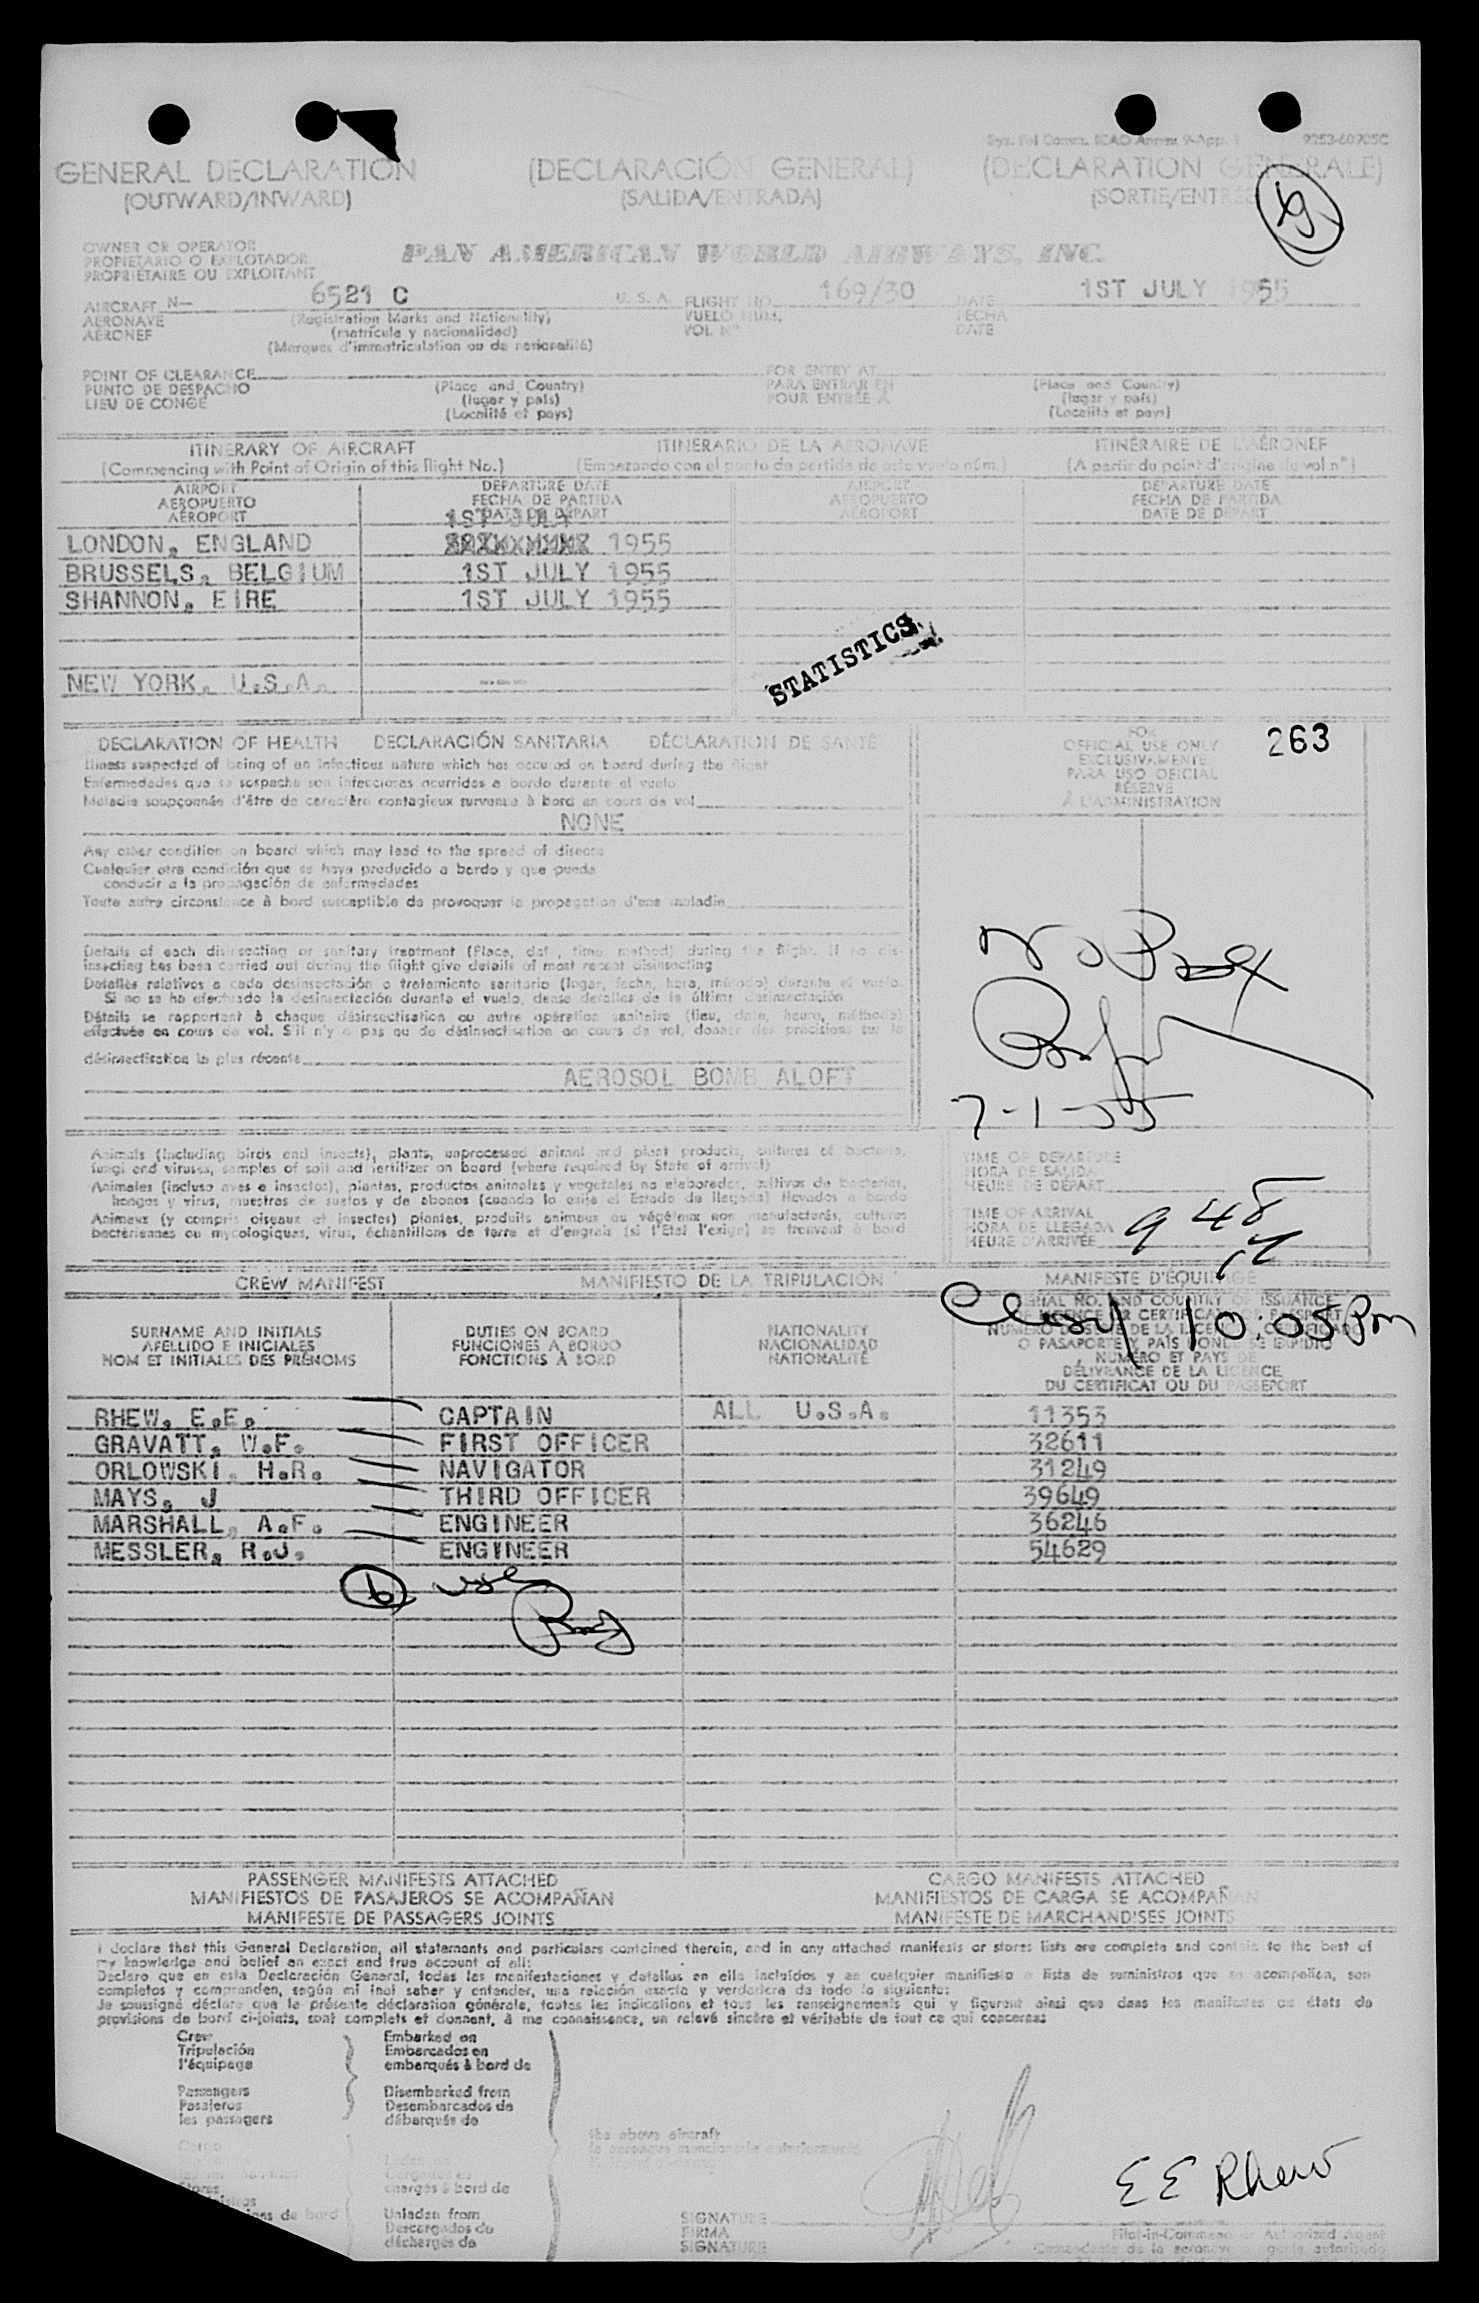 9253-60705C
GENERAL DECLARATION (DECLARACIÓN GENERAL) (DECLARATION GENERALE)
(OUTWARD/INWARD) (SALIDA/ENTRADA) (SORTIE/ENTREE)
OWNER OR OPERATOR
PROPIETARIO O EXPLOTADOR PAN AMERICAN WORLD AIRWAYS, INC.
PROPRIÉTAIRE OU EXPLOITANT
AIRCRAFT N— 6521 C U. S. A. FLIGHT NO. 169/30 DATE 1ST JULY 1955
AERONAVE (Registration Marks and Nationality) VUELO NUM. FECHA
AÉRONEF (matrícula y nacionalidad) VOL N° DATE
(Marques d'immatriculation ou de nationalité)
POINT OF CLEARANCE FOR ENTRY AT
PUNTO DE DESPACHO (Place and Country) PARA ENTRAR EN (Place and Country)
LIEU DE CONGÉ (lugar y país) POUR ENTRÉE A (lugar y país)
(Localité et pays) (Localité et pays)
ITINERARY OF AIRCRAFT ITINERARIO DE LA AERONAVE ITINÉRAIRE DE L'AÉRONEF
(Commencing with Point of Origin of this flight No.) (Empezando con el punto de partida de este vuelo núm.) (A partir du point d'origine du vol n°)
AIRPORT DEPARTURE DATE AIRPORT DEPARTURE DATE
AEROPUERTO FECHA DE PARTIDA AEROPUERTO FECHA DE PARTIDA
AÉROPORT DATE DE DÉPART AÉROPORT DATE DE DÉPART
1ST JULY
LONDON, ENGLAND 1955
BRUSSELS, BELGIUM 1ST JULY 1955
SHANNON, EIRE 1ST JULY 1955
STATISTICS
NEW YORK, U.S.A. ---
DECLARATION OF HEALTH DECLARACIÓN SANITARIA DÉCLARATION DE SANTÉ
FOR
OFFICIAL USE ONLY 263
EXCLUSIVAMENTE
PARA USO OFICIAL
RÉSERVÉ
À L'ADMINISTRATION
Illness suspected of being of an infectious nature which has occured on board during the flight
Enfermedades que se sospeche son infecciosas ocurridas a bordo durante el vuelo
Maladie soupçonnée d'être de caractère contagieux survenue à bord en cours de vol
NONE
Any other condition on board which may lead to the spread of disease
Cualquier otra condición que se haya producido a bordo y que pueda
conducir a la propagación de enfermedades
Toute autre circonstance à bord susceptible de provoquer la propagation d'une maladie
Details of each disinsecting or sanitary treatment (Place, date, time, method) during the flight. If no dis-
insecting has been carried out during the flight give details of most recent disinsecting
Detalles relativos a cada desinsectación o tratamiento sanitario (lugar, fecha, hora, método) durante el vuelo.
Si no se ha efectuado la desinsectación durante el vuelo, dense detalles de la última desinsectación
Détails se rapportant à chaque désinsectisation ou autre opération sanitaire (lieu, date, heure, méthode)
effectuée en cours de vol. S'il n'y a pas eu de désinsectisation en cours de vol, donner des precisions sur la
désinsectisation la plus récente
AEROSOL BOMB ALOFT
7-1-55
Animals (including birds and insects), plants, unprocessed animal and plant products, cultures of bacteria,
fungi and viruses, samples of soil and fertilizer on board (where required by State of arrival)
Animales (incluso aves e insectos), plantas, productos animales y vegetales no elaborados, cultivos de bacterias,
hongos y virus, muestras de suelos y de abonos (cuando lo exija el Estado de llegada) llevados a bordo
Animaux (y compris oiseaux et insectes) plantes, produits animaux ou végétaux non manufacturés, cultures
bactériennes ou mycologiques, virus, échantillons de terre et d'engrais (si l'Etat l'exige) se trouvant à bord
TIME OF DEPARTURE
HORA DE SALIDA
HEURE DE DÉPART
TIME OF ARRIVAL
HORA DE LLEGADA 9 48
HEURE D'ARRIVÉE
CREW MANIFEST MANIFIESTO DE LA TRIPULACIÓN MANIFESTE D'ÉQUIPAGE
10:05 Pm
SURNAME AND INITIALS DUTIES ON BOARD NATIONALITY SERIAL NO. AND COUNTRY OF ISSUANCE
APELLIDO E INICIALES FUNCIONES A BORDO NACIONALIDAD OF LICENCE OR CERTIFICATE OR PASSPORT
NOM ET INITIALES DES PRÉNOMS FONCTIONS À BORD NATIONALITÉ NUMERO DE SERIE DE LA LICENCIA CERTIFICADO
O PASAPORTE Y PAÍS DONDE SE EXPIDIO
NUMÉRO ET PAYS DE
DÉLIVRANCE DE LA LICENCE
DU CERTIFICAT OU DU PASSEPORT
RHEW, E.E. CAPTAIN ALL U.S.A. 11353
GRAVATT, W.F. FIRST OFFICER 32611
ORLOWSKI, H.R. NAVIGATOR 31249
MAYS, J THIRD OFFICER 39649
MARSHALL, A.F. ENGINEER 36246
MESSLER, R.J. ENGINEER 54629
PASSENGER MANIFESTS ATTACHED CARGO MANIFESTS ATTACHED
MANIFIESTOS DE PASAJEROS SE ACOMPAÑAN MANIFIESTOS DE CARGA SE ACOMPAÑAN
MANIFESTE DE PASSAGERS JOINTS MANIFESTE DE MARCHANDISES JOINTS
I declare that this General Declaration, all statements and particulars contained therein, and in any attached manifests or stores lists are complete and contain to the best of
my knowledge and belief an exact and true account of all:
Declaro que en esta Declaración General, todas las manifestaciones y detallas en ella incluídos y en cualquier manifiesto o lista de suministros que se acompañen, son
completos y comprenden, según mi leal saber y entender, una relación exacta y verdadera de todo lo siguiente:
Je soussigné déclare que la présente déclaration générale, toutes les indications et tous les renseignements qui y figurent ainsi que dans les manifestes ou états de
provisions de bord ci-joints, sont complets et donnent, à ma connaissance, un relevé sincère et véritable de tout ce qui concerne:
Crew Embarked on
Tripulación Embarcados en
l'équipage embarqués à bord de
Passengers Disembarked from
Pasajeros Desembarcados de
les passagers débarqués de
the above aircraft
Cargo
Cargados en
Stores chargés à bord de
de bord Unladen from
Descargados de
déchargés de
E E Rhew
SIGNATURE
FIRMA Pilot-in-Command or Authorized Agent
SIGNATURE Comandante de la aeronave o agente autorizado